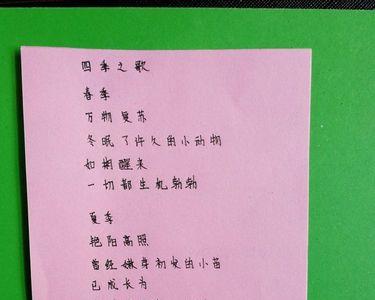 四季之歌
春季
万物复苏
冬眠了许久的小动物
如期醒来
一切都生机勃勃
夏季
艳阳高照
曾经嫩芽初发的小苗
已成长为